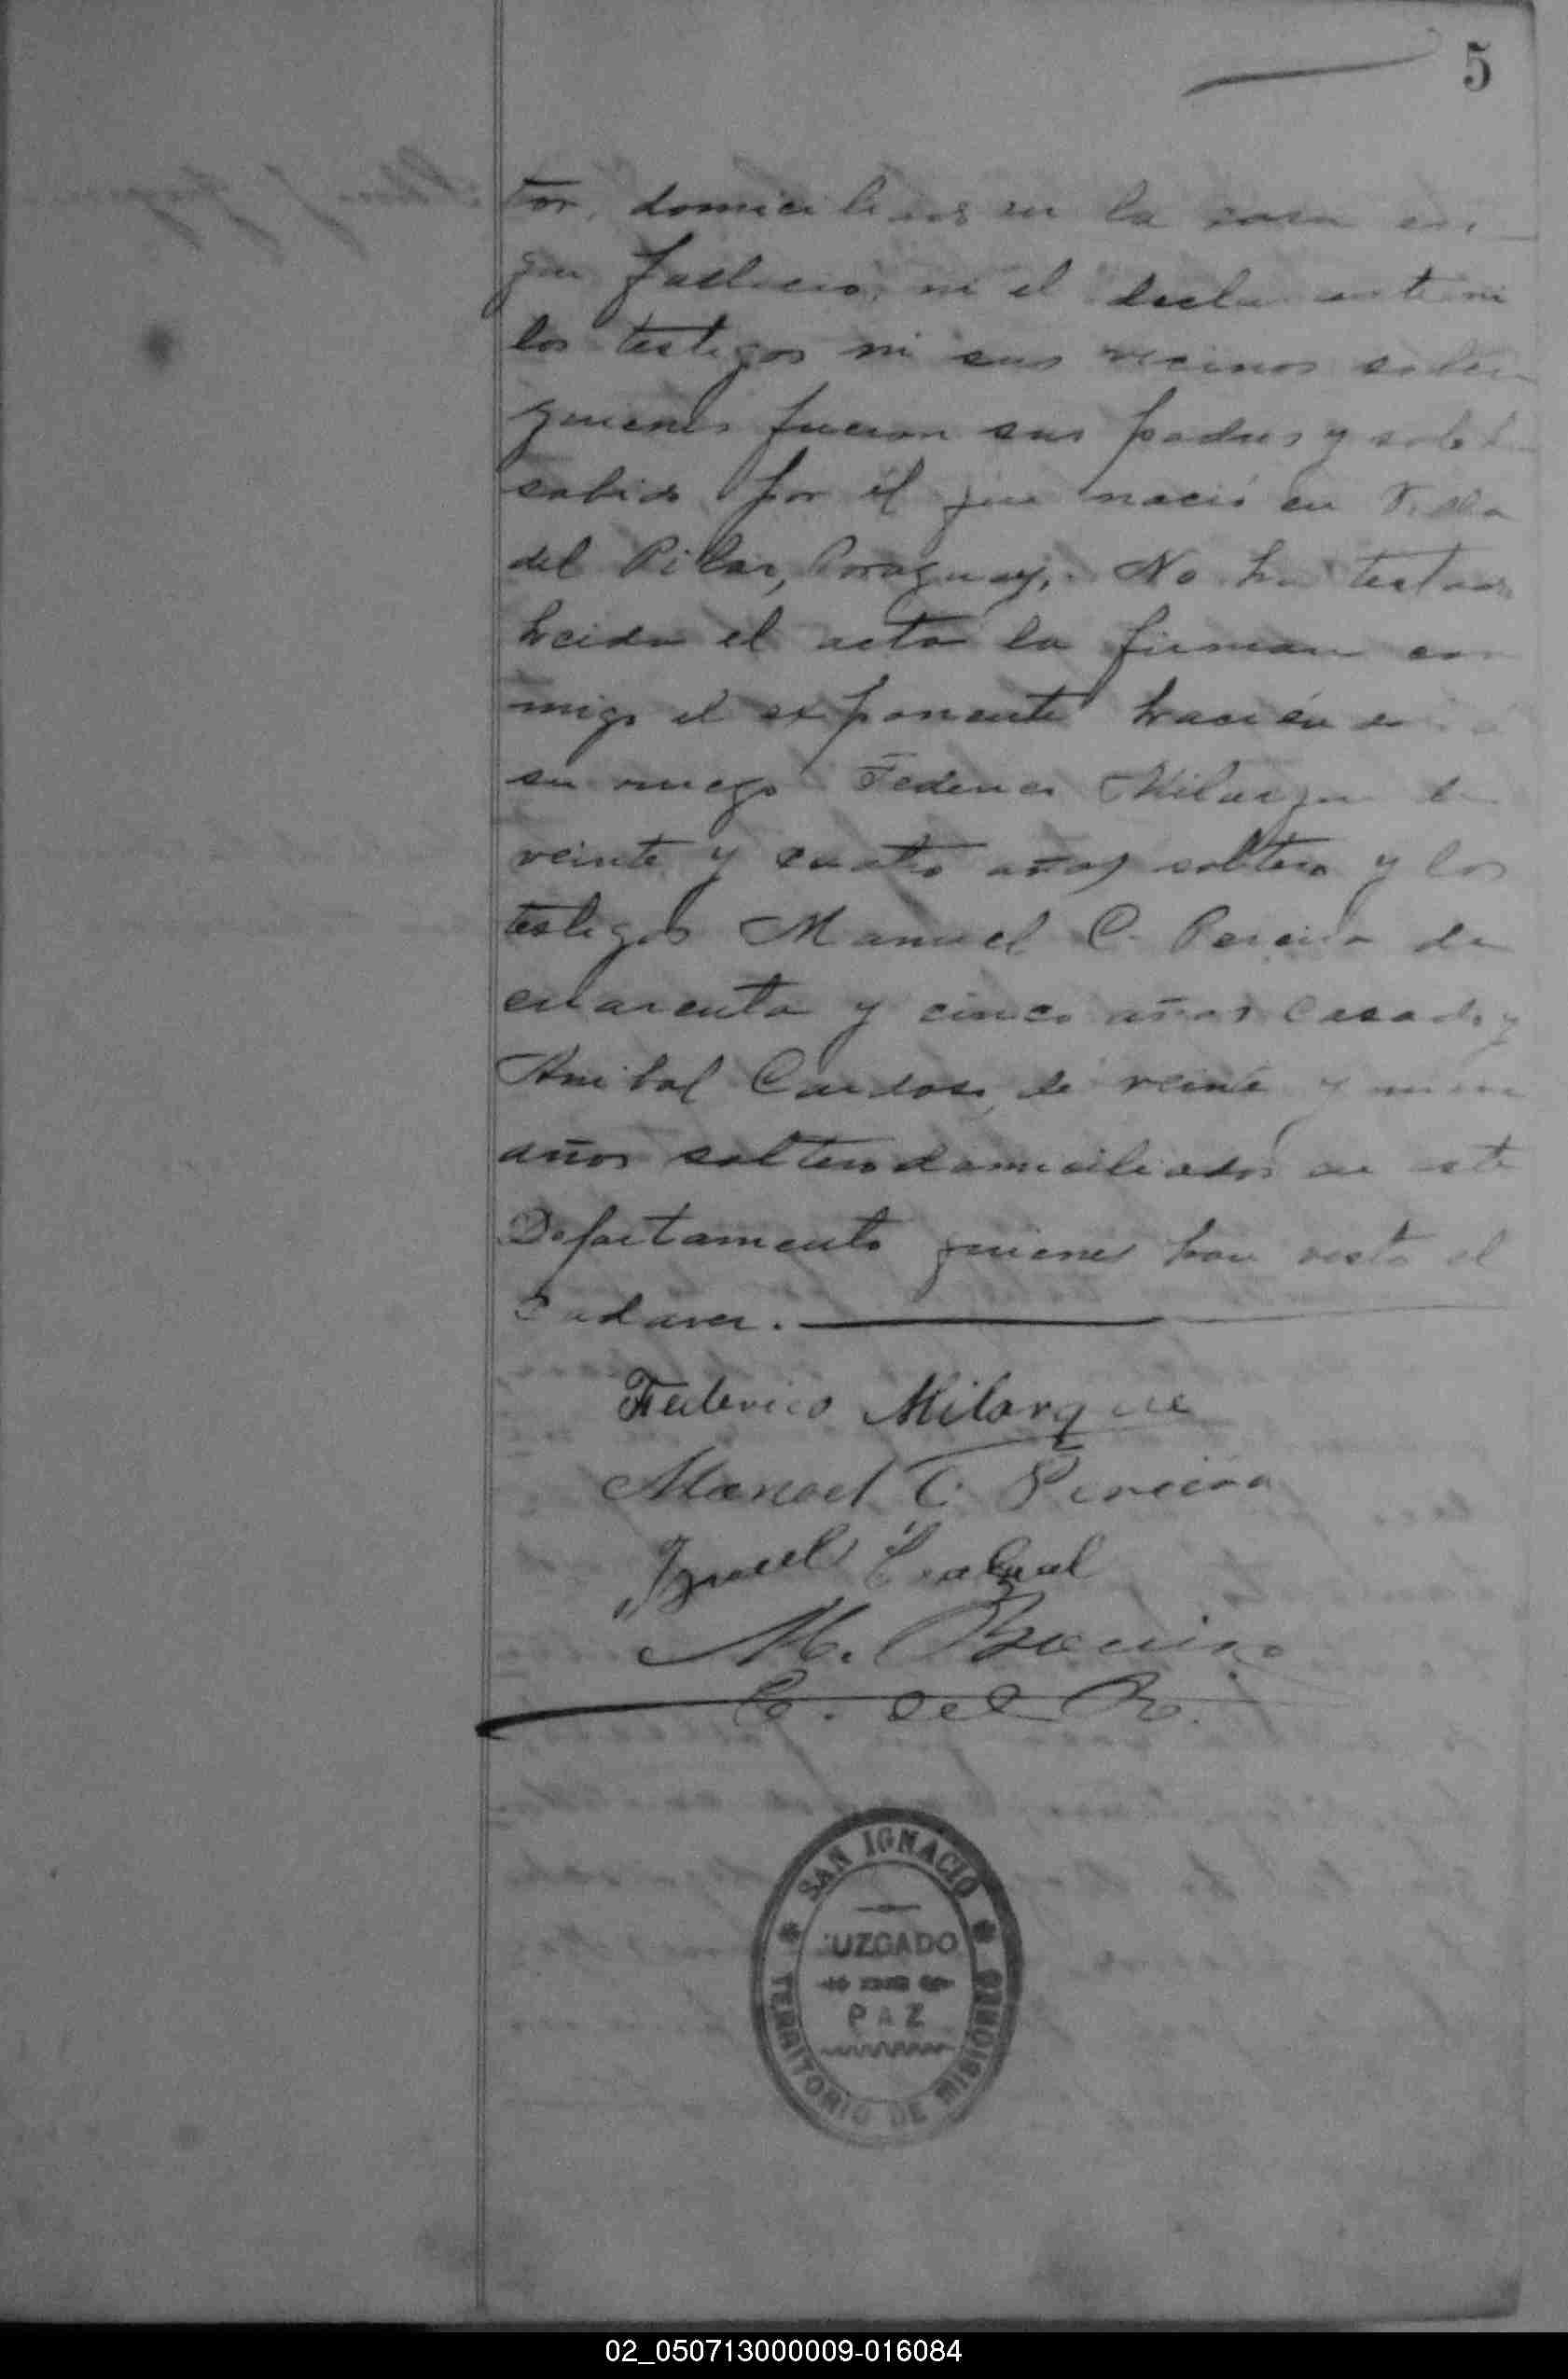 5
tor, domiciliado en la casa en
que fallecio, ni el declarante ni
los testigos ni sus vecinos saben
quienes fueron sus padres y solo
sabido por él que nació en Villa
del Pilar, Paraguay. No ha testado
Leida el acta la firman con
migo el exponente haciendo á
su ruego Federico Milarque de
veinte y cuatro años soltero y los
testigos Manuel C. Pereira de
cuarenta y cinco años casado y
Anibal Cardoso de veinte y nueve
años soltero domiciliados en este
Departamento quienes han visto el
Cadaver.
Federico Milarque
Manoel C. Pereira
M.
E. del R.
SAN IGNACIO
JUZGADO
DE
PAZ
TERRITORIO DE MISIONES
02_050713000009-016084